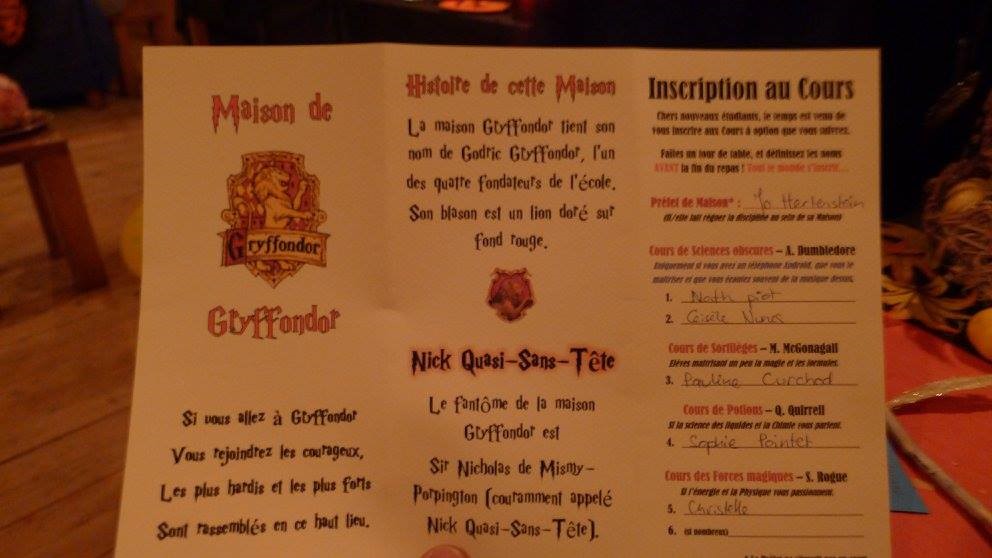 Maison de
Gryffondor
Gryffondor
Si vous allez à Gryffondor
Vous rejoindrez les courageux,
Les plus hardis et les plus forts
Sont rassemblés en ce haut lieu.
Histoire de cette Maison
La maison Gryffondor tient son
nom de Godric Gryffondor, l'un
des quatre fondateurs de l'école.
Son blason est un lion doré sur
fond rouge.
Nick Quasi-Sans-Tête
Le fantôme de la maison
Gryffondor est
Sir Nicholas de Mismy-
Porpington (couramment appelé
Nick Quasi-Sans-Tête).
Inscription au Cours
Chers nouveaux étudiants, le temps est venu de
vous inscrire aux Cours à option que vous suivrez.
Faites un tour de table, et définissez les noms
AVANT la fin du repas ! Tout le monde s'inscrit...
Préfet de Maison* : Yo Hertenstein
(Il/elle fait régner la discipline au sein de sa Maison)
Cours de Sciences obscures – A. Dumbledore
Uniquement si vous avez un téléphone Android, que vous le
maîtrisez et que vous écoutez souvent de la musique dessus.
1. Nath piot
2. Gisèle Nunes
Cours de Sortilèges – M. McGonagall
Elèves maîtrisant un peu la magie et les formules.
3. Pauline Curchod
Cours de Potions – Q. Quirrell
Si la science des liquides et la Chimie vous parlent.
4. Sophie Pointet
Cours des Forces magiques – S. Rogue
Si l'énergie et la Physique vous passionnent.
5. Christelle
6. (si nombreux)